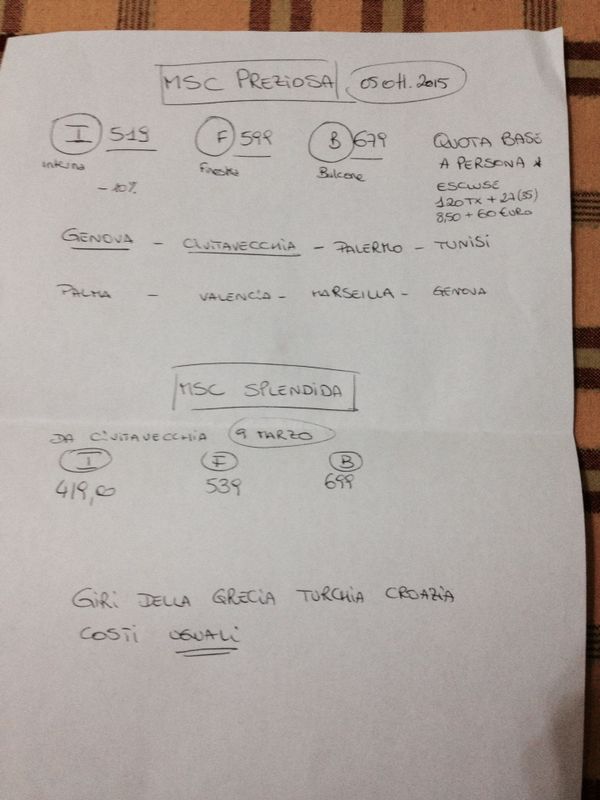 MSC PREZIOSA 05 Ott. 2015
I 519 F 599 B 679
interna Finestra Balcone
- 10%
QUOTA BASE
A PERSONA *
ESCLUSE
120 TX + 27 (35)
8,50 + 60 EURO
GENOVA - CIVITAVECCHIA - PALERMO - TUNISI
PALMA - VALENCIA - MARSEILLA - GENOVA
MSC SPLENDIDA
DA CIVITAVECCHIA 9 MARZO
I F B
419,00 539 699
GIRI DELLA GRECIA TURCHIA CROAZIA
COSTI UGUALI